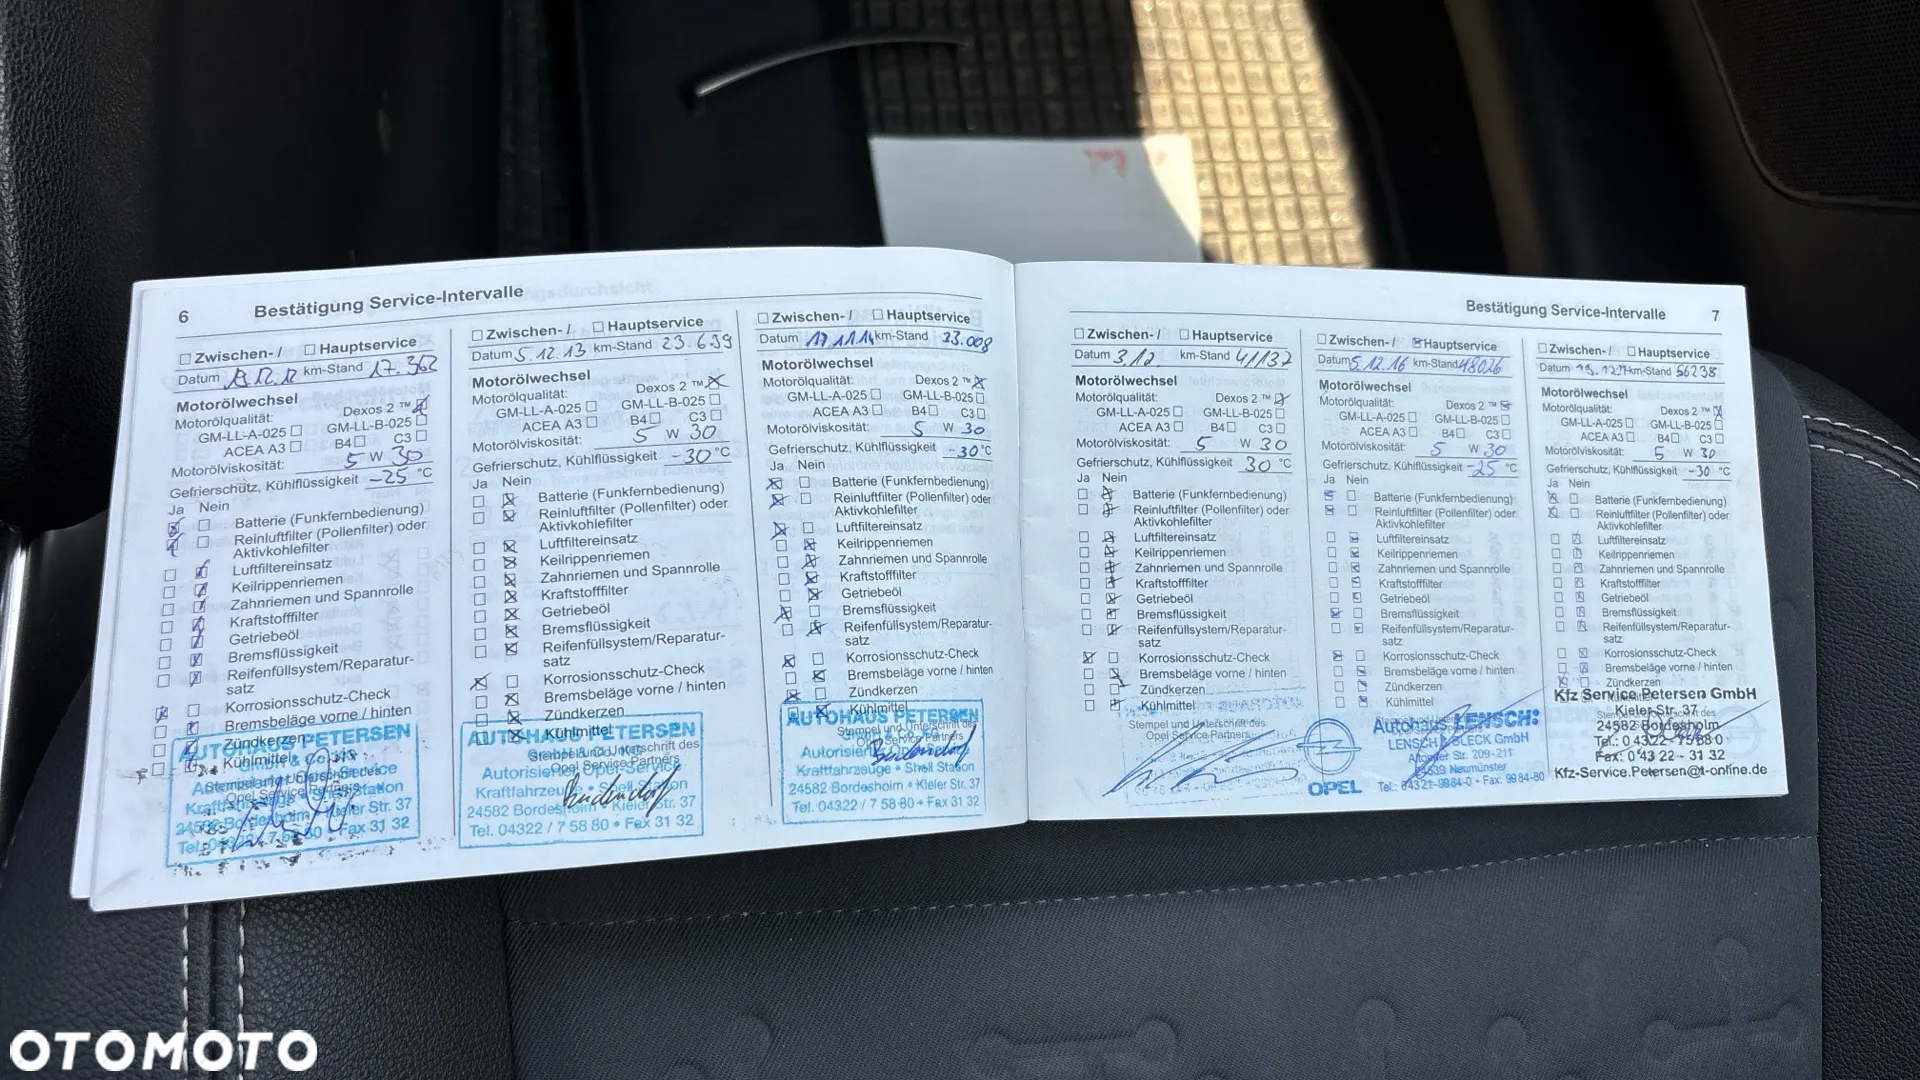 6 Bestätigung Service-Intervalle
Zwischen- / Hauptservice
Datum 12.12 km-Stand 17.362
Motorölwechsel
Motorölqualität: Dexos 2 ™
GM-LL-A-025 GM-LL-B-025
ACEA A3 B4 C3
Motorölviskosität: 5 W 30
Gefrierschutz, Kühlflüssigkeit -25 °C
Ja Nein
Batterie (Funkfernbedienung)
Reinluftfilter (Pollenfilter) oder
Aktivkohlefilter
Luftfiltereinsatz
Keilrippenriemen
Zahnriemen und Spannrolle
Kraftstofffilter
Getriebeöl
Bremsflüssigkeit
Reifenfüllsystem/Reparatur-
satz
Korrosionsschutz-Check
Bremsbeläge vorne / hinten
Zündkerzen
Kühlmittel
AUTOHAUS PETERSEN
Stempel und Unterschrift des
Opel Service Partners
24582 Bordesholm Kieler Str. 37
Fax 31 32
Zwischen- / Hauptservice
Datum 5.12.13 km-Stand 23.699
Motorölwechsel
Motorölqualität: Dexos 2 ™
GM-LL-A-025 GM-LL-B-025
ACEA A3 B4 C3
Motorölviskosität: 5 W 30
Gefrierschutz, Kühlflüssigkeit -30 °C
Ja Nein
Batterie (Funkfernbedienung)
Reinluftfilter (Pollenfilter) oder
Aktivkohlefilter
Luftfiltereinsatz
Keilrippenriemen
Zahnriemen und Spannrolle
Kraftstofffilter
Getriebeöl
Bremsflüssigkeit
Reifenfüllsystem/Reparatur-
satz
Korrosionsschutz-Check
Bremsbeläge vorne / hinten
Zündkerzen
Kühlmittel
AUTOHAUS PETERSEN
GmbH & Co. KG
Stempel und Unterschrift des
Opel Service Partners
Autorisierter Opel-Service
Kraftfahrzeuge • Shell Station
24582 Bordesholm • Kieler Str. 37
Tel. 04322 / 7 58 80 • Fax 31 32
Zwischen- / Hauptservice
Datum 17.11.14 km-Stand 33.008
Motorölwechsel
Motorölqualität: Dexos 2 ™
GM-LL-A-025 GM-LL-B-025
ACEA A3 B4 C3
Motorölviskosität: 5 W 30
Gefrierschutz, Kühlflüssigkeit -30 °C
Ja Nein
Batterie (Funkfernbedienung)
Reinluftfilter (Pollenfilter) oder
Aktivkohlefilter
Luftfiltereinsatz
Keilrippenriemen
Zahnriemen und Spannrolle
Kraftstofffilter
Getriebeöl
Bremsflüssigkeit
Reifenfüllsystem/Reparatur-
satz
Korrosionsschutz-Check
Bremsbeläge vorne / hinten
Zündkerzen
Kühlmittel
AUTOHAUS PETERSEN
Stempel und Unterschrift des
Opel Service Partners
Kraftfahrzeuge • Shell Station
24582 Bordesholm • Kieler Str. 37
Tel. 04322 / 7 58 80 • Fax 31 32
Bestätigung Service-Intervalle 7
Zwischen- / Hauptservice
Datum 3.12. km-Stand 41132
Motorölwechsel
Motorölqualität: Dexos 2 ™
GM-LL-A-025 GM-LL-B-025
ACEA A3 B4 C3
Motorölviskosität: 5 W 30
Gefrierschutz, Kühlflüssigkeit 30 °C
Ja Nein
Batterie (Funkfernbedienung)
Reinluftfilter (Pollenfilter) oder
Aktivkohlefilter
Luftfiltereinsatz
Keilrippenriemen
Zahnriemen und Spannrolle
Kraftstofffilter
Getriebeöl
Bremsflüssigkeit
Reifenfüllsystem/Reparatur-
satz
Korrosionsschutz-Check
Bremsbeläge vorne / hinten
Zündkerzen
Kühlmittel
Stempel und Unterschrift des
Opel Service Partners
Zwischen- / Hauptservice
Datum 5.12.16 km-Stand 48026
Motorölwechsel
Motorölqualität: Dexos 2 ™
GM-LL-A-025 GM-LL-B-025
ACEA A3 B4 C3
Motorölviskosität: 5 W 30
Gefrierschutz, Kühlflüssigkeit -25 °C
Ja Nein
Batterie (Funkfernbedienung)
Reinluftfilter (Pollenfilter) oder
Aktivkohlefilter
Luftfiltereinsatz
Keilrippenriemen
Zahnriemen und Spannrolle
Kraftstofffilter
Getriebeöl
Bremsflüssigkeit
Reifenfüllsystem/Reparatur-
satz
Korrosionsschutz-Check
Bremsbeläge vorne / hinten
Zündkerzen
Kühlmittel
Autohaus LENSCH:
LENSCH & BLECK GmbH
Altonaer Str. 209-211
24539 Neumünster
OPEL Tel.: 04321-9984-0 • Fax: 9984-80
Zwischen- / Hauptservice
Datum km-Stand 56238
Motorölwechsel
Motorölqualität: Dexos 2 ™
GM-LL-A-025 GM-LL-B-025
ACEA A3 B4 C3
Motorölviskosität: 5 W 30
Gefrierschutz, Kühlflüssigkeit -30 °C
Ja Nein
Batterie (Funkfernbedienung)
Reinluftfilter (Pollenfilter) oder
Aktivkohlefilter
Luftfiltereinsatz
Keilrippenriemen
Zahnriemen und Spannrolle
Kraftstofffilter
Getriebeöl
Bremsflüssigkeit
Reifenfüllsystem/Reparatur-
satz
Korrosionsschutz-Check
Bremsbeläge vorne / hinten
Zündkerzen
Kfz Service Petersen GmbH
Kieler Str. 37
24582 Bordesholm
Tel.: 0 4322 - 75 88 0
Fax: 0 43 22 - 31 32
Kfz-Service.Petersen@t-online.de
OTOMOTO